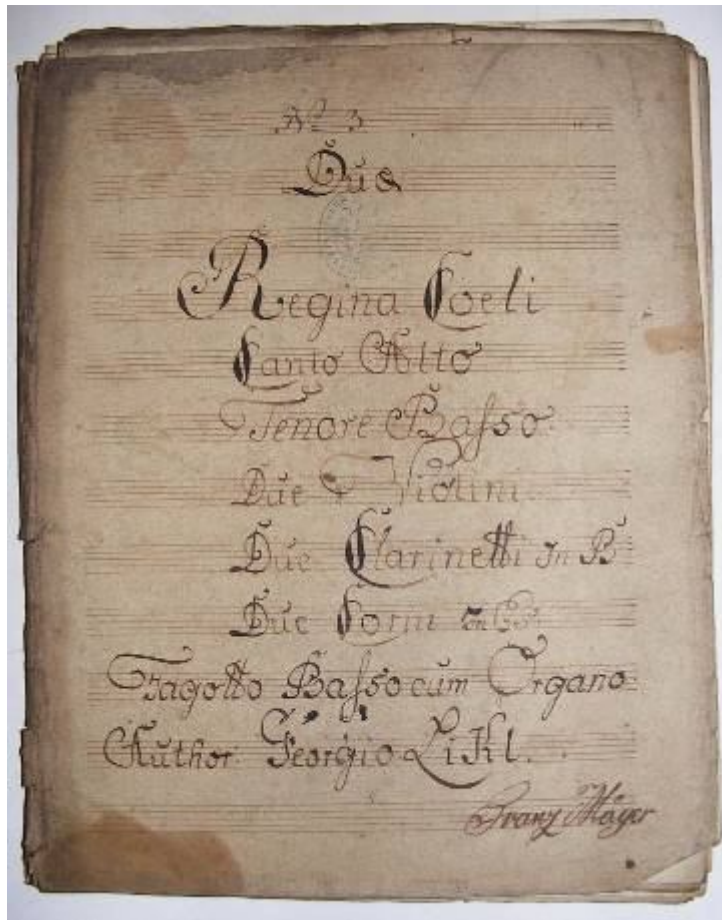 Nº 3
Due
Regina Coeli
Canto Alto
Tenore Basso.
Due Violini.
Due Clarinetti In B
Due Corni In B.
Fagotto Basso cum Organo
Author Georgio Likl.
Franz Mayer